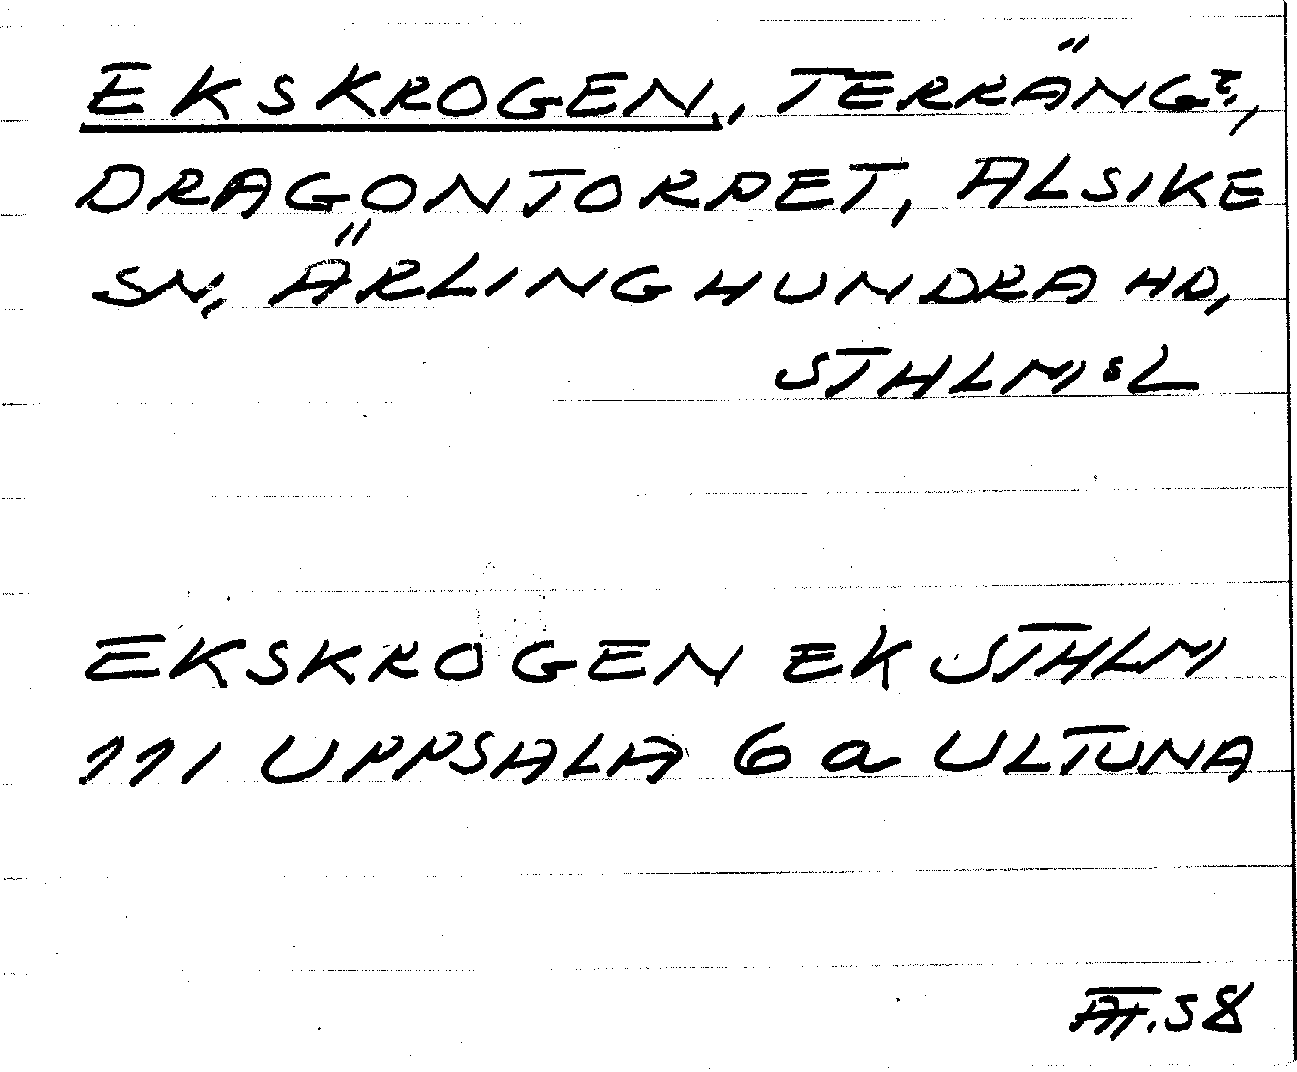 EKSKROGEN, TERRÄNG?,
DRAGONTORPET, ALSIKE
SN, ÄRLINGHUNDRA HD,
STHLM:S L
EKSKROGEN EK STHLM
111 UPPSALA 6a ULTUNA
.58